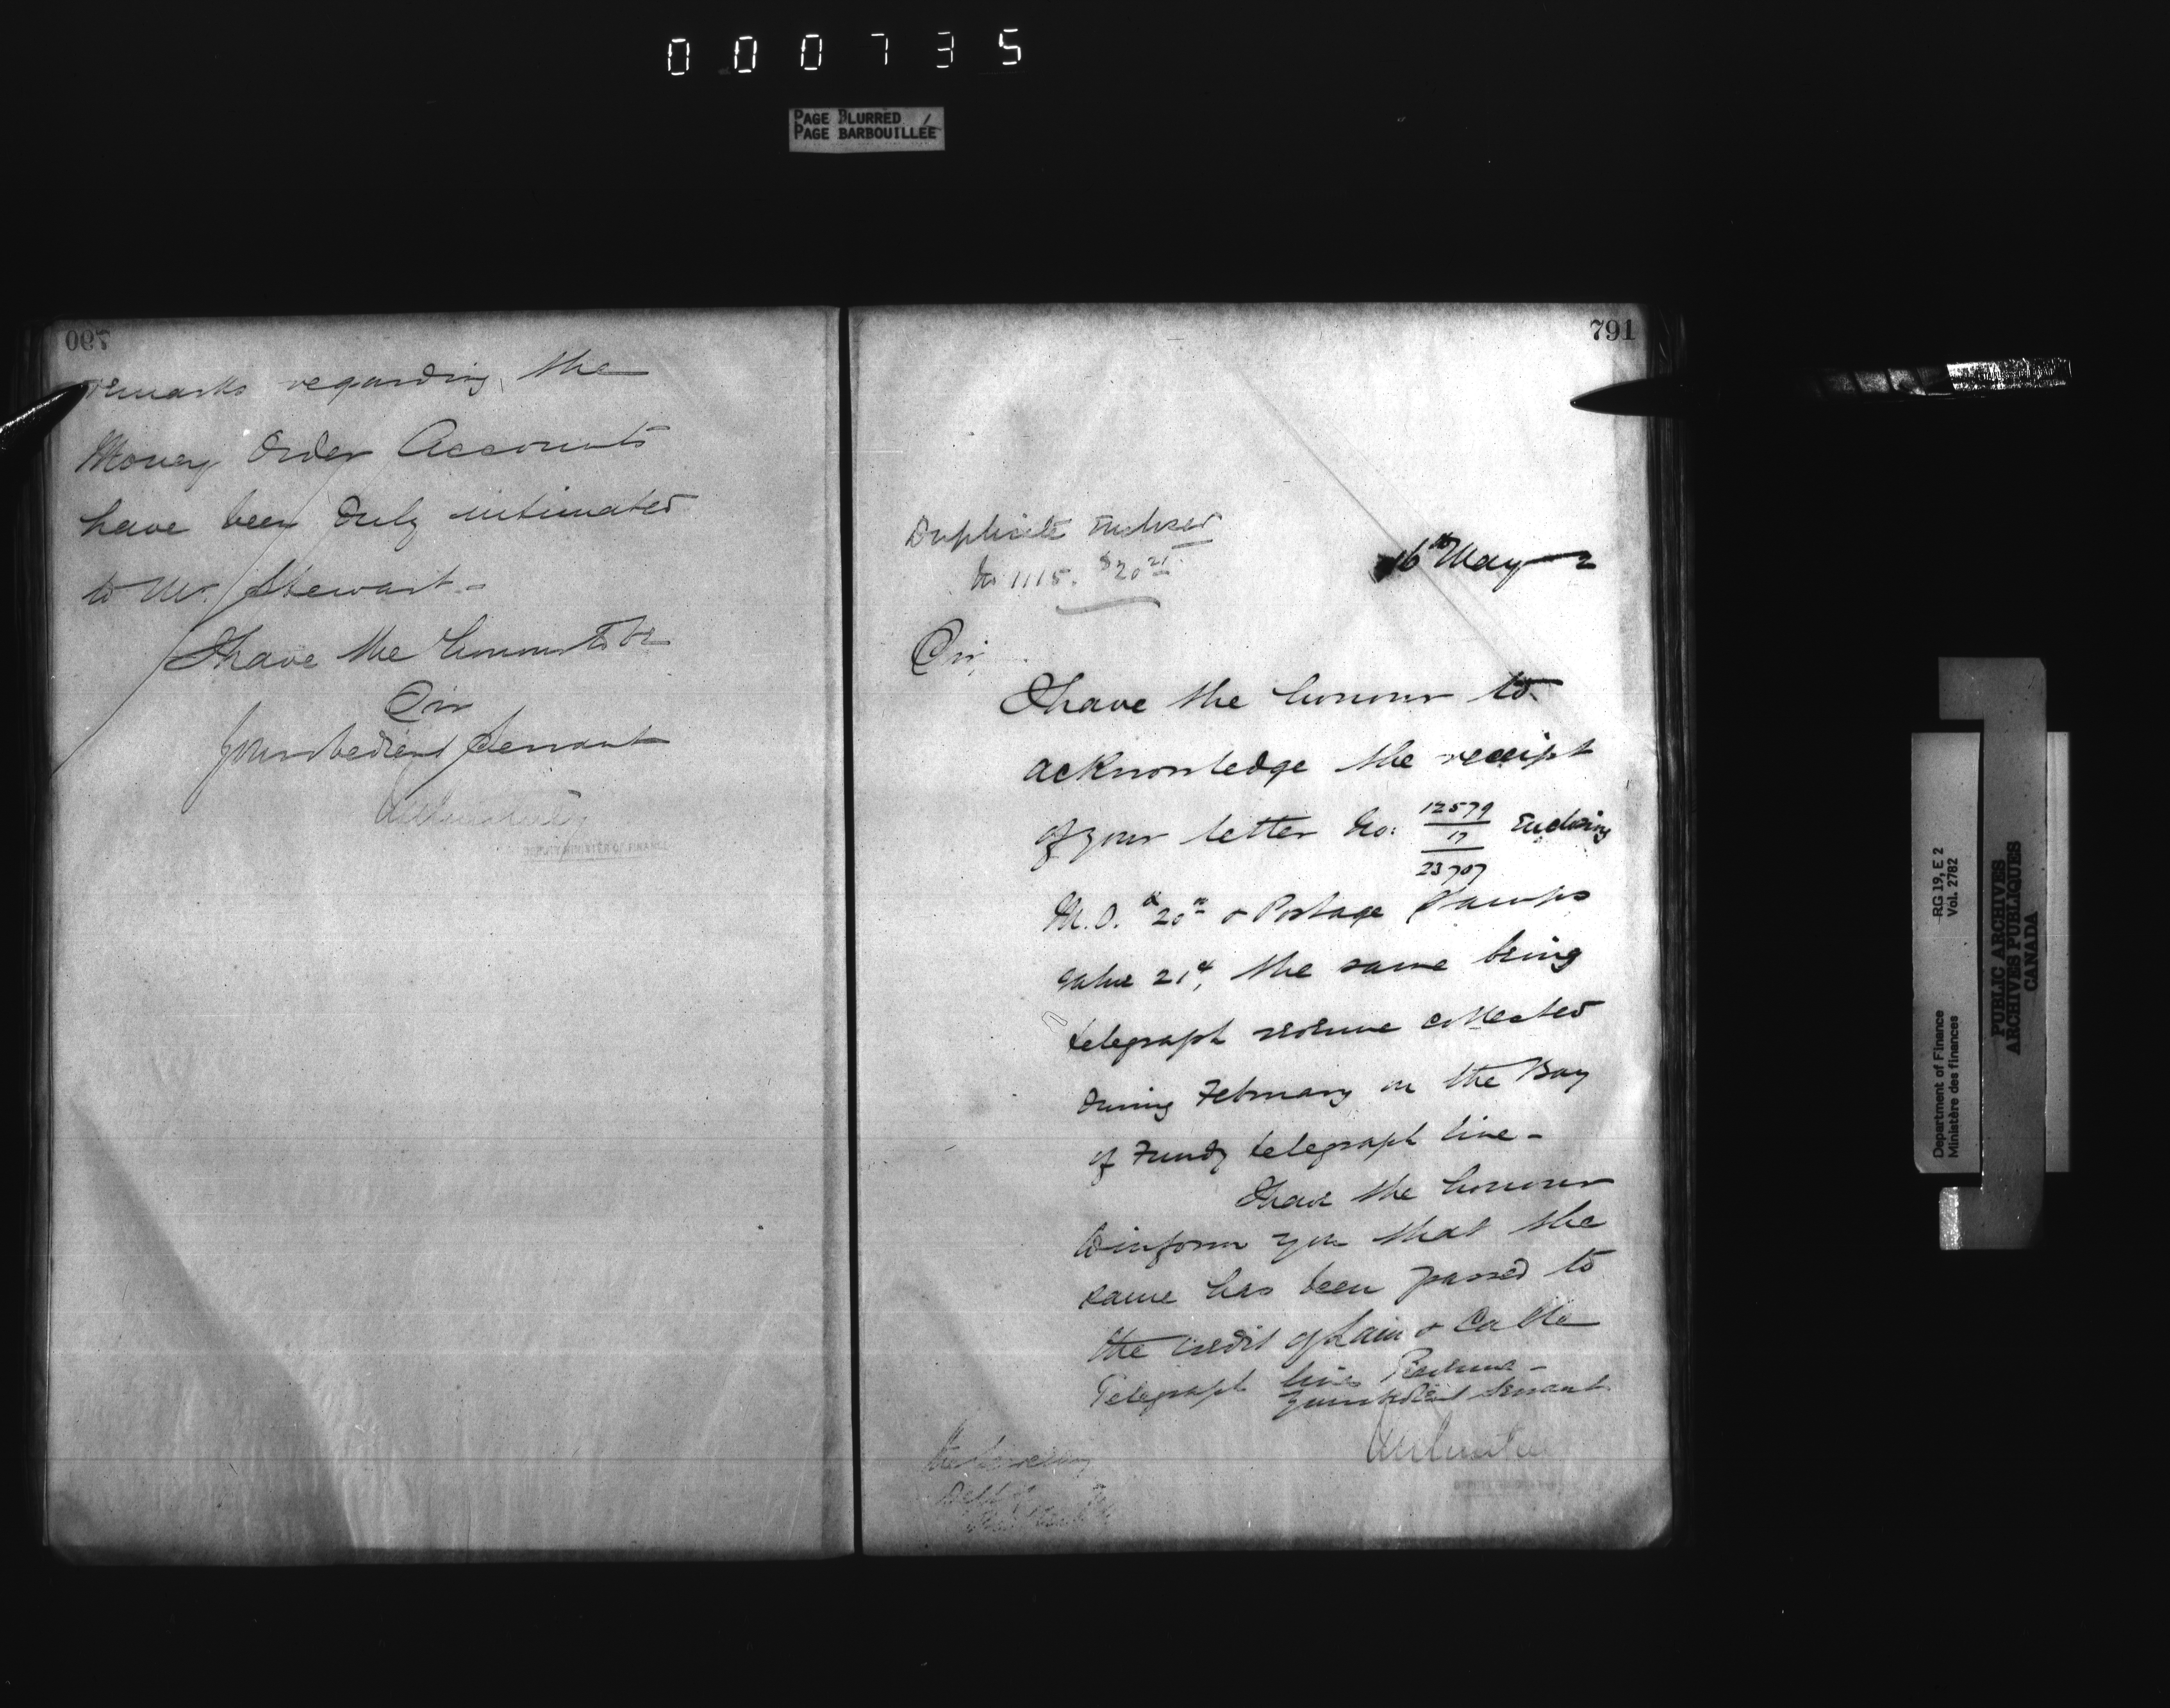 000735
PAGE BLURRED
PAGE BARBOUILLÉE
790
remarks regarding the
Money Order Accounts
have been duly intimated
to Mr. Stewart.-
I have the honour to be
Sir
Your obedient Servant
DEPUTY MINISTER OF FINANCE
791
Duplicate Enclosed
No 1115. $20 21
16th May 2
Sir,
I have the honour to
acknowledge the receipt
of your letter No: 12579/17/23707 Enclosing
M.O. $20 & Postage Stamps
value 21¢, the same being
telegraph revenue collected
during February on the Bay
of Fundy telegraph line-
I have the honour
to inform you that the
same has been passed to
the credit of Land & Cable
Telegraph lines Revenue-
Your obedient Servant
The Secretary
RG 19, E 2
Vol. 2782
Department of Finance
Ministère des finances
PUBLIC ARCHIVES
ARCHIVES PUBLIQUES
CANADA